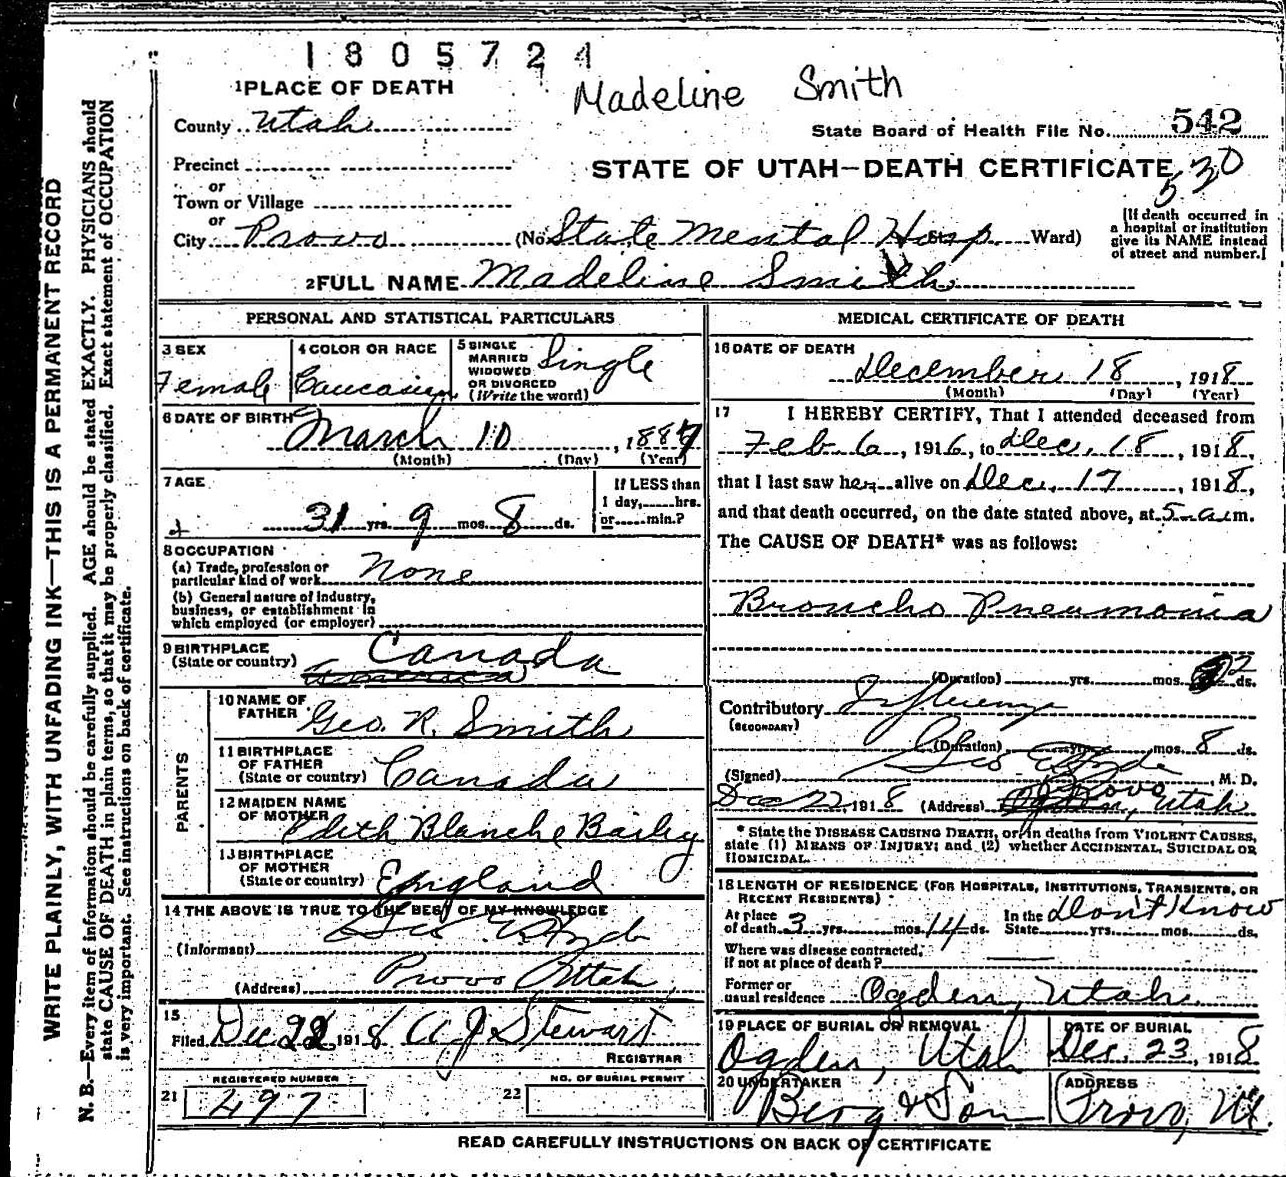 1805724
Madeline Smith
1 PLACE OF DEATH
County Utah
State Board of Health File No. 542
Precinct
STATE OF UTAH—DEATH CERTIFICATE
530
or
Town or Village
or
City Provo (No. State Mental Hosp St. Ward)
[If death occurred in
a hospital or institution
give its NAME instead
of street and number.]
2 FULL NAME Madeline Smith
PERSONAL AND STATISTICAL PARTICULARS
3 SEX
Female
4 COLOR OR RACE
Caucasian
5 SINGLE
MARRIED
WIDOWED
OR DIVORCED
(Write the word)
Single
6 DATE OF BIRTH
March 10, 1887
(Month) (Day) (Year)
7 AGE
31 yrs. 9 mos. 8 ds.
If LESS than
1 day, hrs.
or min.?
8 OCCUPATION
(a) Trade, profession or
particular kind of work None
(b) General nature of industry,
business, or establishment in
which employed (or employer)
9 BIRTHPLACE
(State or country) Canada
PARENTS
10 NAME OF
FATHER Geo. R. Smith
11 BIRTHPLACE
OF FATHER
(State or country) Canada
12 MAIDEN NAME
OF MOTHER Edith Blanche Bailey
13 BIRTHPLACE
OF MOTHER
(State or country) England
14 THE ABOVE IS TRUE TO THE BEST OF MY KNOWLEDGE
(Informant) Geo E Hyde
(Address) Provo Utah
15
Filed Dec 22 1918 A J Stewart
REGISTRAR
21 REGISTERED NUMBER
497
22 NO. OF BURIAL PERMIT
MEDICAL CERTIFICATE OF DEATH
16 DATE OF DEATH
December 18, 1918
(Month) (Day) (Year)
17 I HEREBY CERTIFY, That I attended deceased from
Feb. 6, 1916, to Dec. 18, 1918,
that I last saw her alive on Dec. 17, 1918,
and that death occurred, on the date stated above, at 5 a.m.
The CAUSE OF DEATH* was as follows:
Broncho Pneumonia
(Duration) yrs. mos. 2 ds.
Contributory Influenza
(SECONDARY)
(Duration) yrs. mos. 8 ds.
(Signed) Geo E Hyde, M. D.
Dec 22, 1918 (Address) Provo, Utah
* State the DISEASE CAUSING DEATH, or, in deaths from VIOLENT CAUSES,
state (1) MEANS OF INJURY; and (2) whether ACCIDENTAL, SUICIDAL OR
HOMICIDAL.
18 LENGTH OF RESIDENCE (FOR HOSPITALS, INSTITUTIONS, TRANSIENTS, OR
RECENT RESIDENTS)
At place
of death 3 yrs. mos. 14 ds.
In the
State yrs. mos. ds.
Don't Know
Where was disease contracted,
If not at place of death?
Former or
usual residence Ogden, Utah
19 PLACE OF BURIAL OR REMOVAL
Ogden, Utah
DATE OF BURIAL
Dec. 23, 1918
20 UNDERTAKER
Berg & Son
ADDRESS
Provo, Ut.
READ CAREFULLY INSTRUCTIONS ON BACK OF CERTIFICATE
WRITE PLAINLY, WITH UNFADING INK—THIS IS A PERMANENT RECORD
N. B.—Every item of information should be carefully supplied. AGE should be stated EXACTLY. PHYSICIANS should
state CAUSE OF DEATH in plain terms, so that it may be properly classified. Exact statement of OCCUPATION
is very important. See instructions on back of certificate.